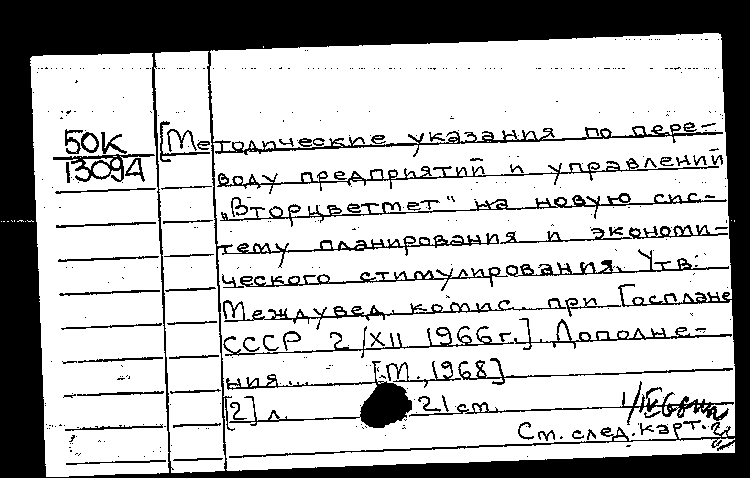 50К
13094
[Методические указания по пере-
воду предприятий и управлений
„Вторцветмет" на новую сис-
тему планирования и экономи-
ческого стимулирования. Утв:
Междувед. комис. при Госплане
СССР 2/XII 1966г.]. Дополне-
ния... [М., 1968]
[2] л. 21 см.
См. след. карт.